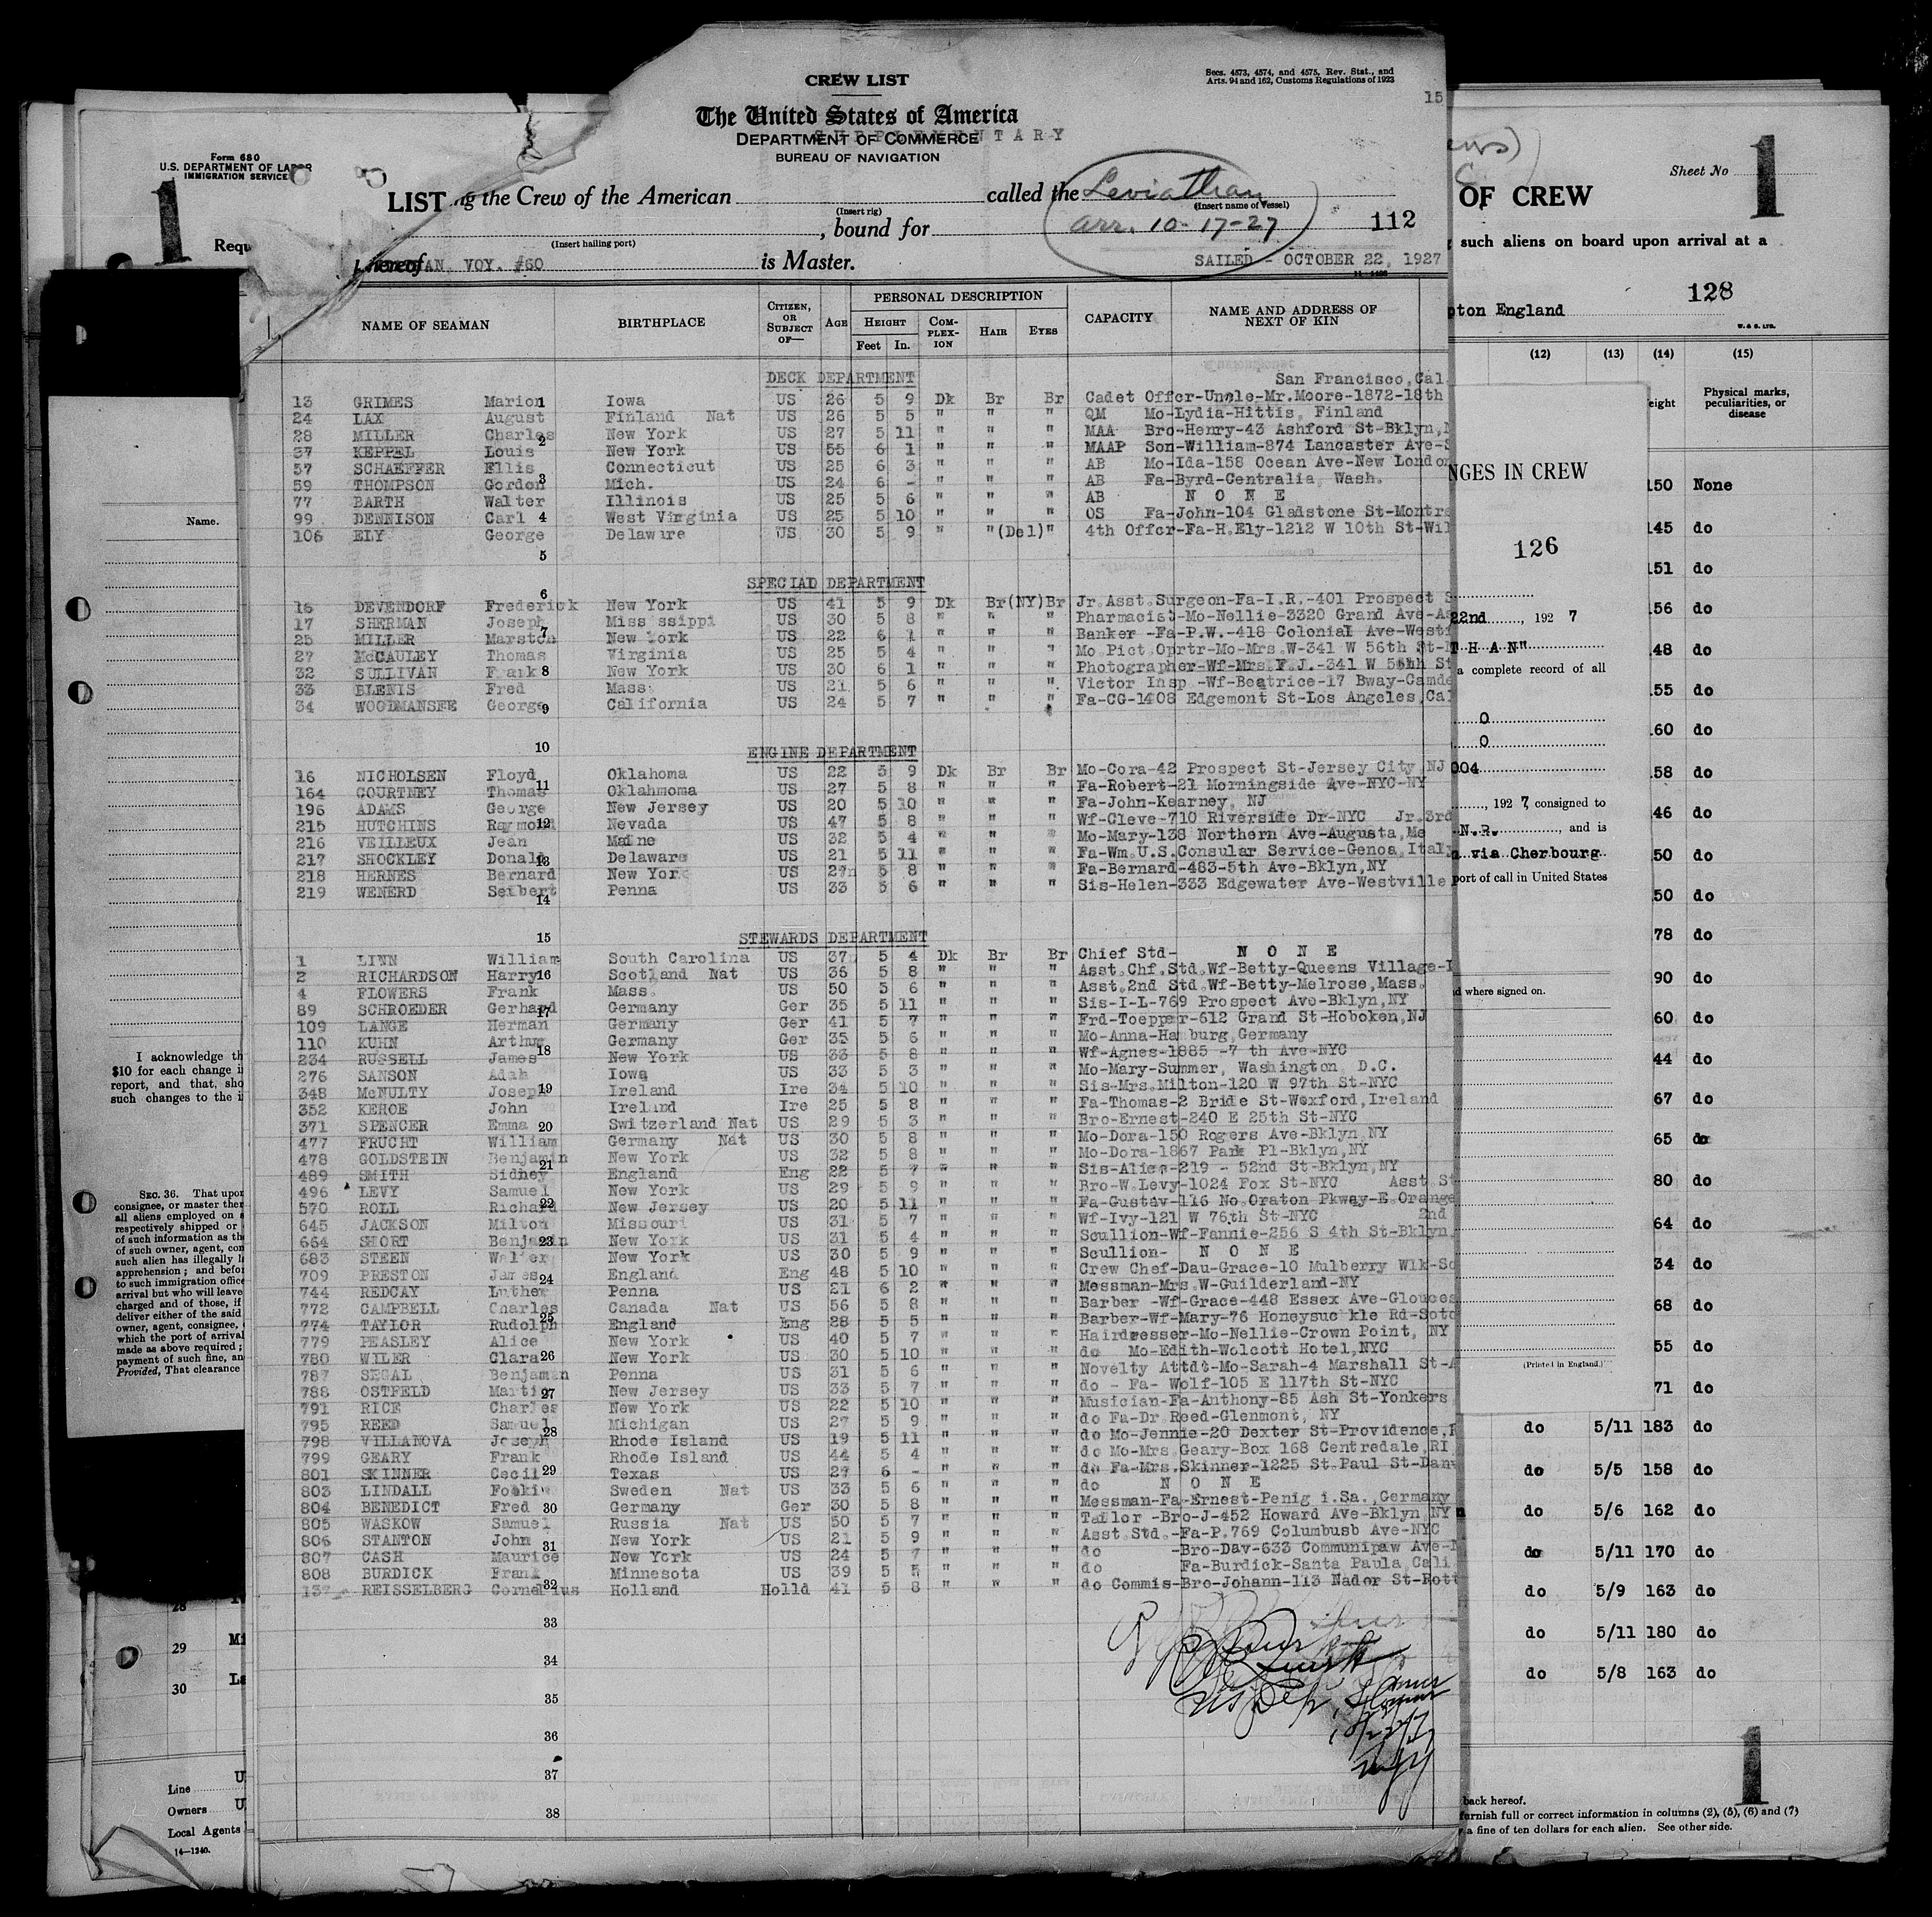 CREW LIST
Secs. 4573, 4574, and 4575, Rev. Stat., and
Arts. 94 and 162, Customs Regulations of 1923
15
The United States of America
SUPPLEMENTARY
DEPARTMENT OF COMMERCE
BUREAU OF NAVIGATION
Form 680
U.S. DEPARTMENT OF LABOR
IMMIGRATION SERVICE
1
LIST ng the Crew of the American called the Leviathan
(Insert rig) (Insert name of Vessel)
, bound for arr. 10-17-27 112
(Insert hailing port)
hereof AN VOY. #60 is Master. SAILED - OCTOBER 22, 1927
NAME OF SEAMAN BIRTHPLACE CITIZEN, OR SUBJECT OF— AGE PERSONAL DESCRIPTION CAPACITY NAME AND ADDRESS OF NEXT OF KIN
HEIGHT COM-PLEX-ION HAIR EYES
Feet In.
DECK DEPARTMENT San Francisco, Cal.
13 GRIMES Marion Iowa US 26 5 9 Dk Br Br Cadet Offcr-Uncle-Mr.Moore-1872-18th
24 LAX August Finland Nat US 26 5 5 " " " QM Mo-Lydia-Hittis, Finland
28 MILLER Charles New York US 27 5 11 " " " MAA Bro-Henry-43 Ashford St-Bklyn,N
37 KEPPEL Louis New York US 55 6 1 " " " MAAP Son-William-874 Lancaster Ave-S
57 SCHAEFFER Ellis Connecticut US 25 6 3 " " " AB Mo-Ida-158 Ocean Ave-New London
59 THOMPSON Gordon Mich. US 24 6 - " " " AB Fa-Byrd-Centralia, Wash.
77 BARTH Walter Illinois US 25 5 6 " " " AB N O N E
99 DENNISON Carl West Virginia US 25 5 10 " " " OS Fa-John-104 Gladstone St-Montre
106 ELY George Delaware US 30 5 9 " " (Del) " 4th Offcr-Fa-H.Ely-1212 W 10th St-Wil
SPECIAD DEPARTMENT
16 DEVENDORF Frederick New York US 41 5 9 Dk Br(NY)Br Jr.Asst.Surgeon-Fa-I.R.-401 Prospect S
17 SHERMAN Joseph Missi ssippi US 30 5 8 " " " Pharmacist-Mo-Nellie-3320 Grand Ave-As
25 MILLER Marston New York US 22 6 1 " " " Banker -Fa-P.W.-418 Colonial Ave-Westf
27 McCAULEY Thomas Virginia US 25 5 4 " " " Mo Pict Oprtr-Mo-Mrs.W-341 W 56th St-N
32 SULLIVAN Frank New York US 30 6 1 " " " Photographer-Wf-Mrs.F.J.-341 W 56th St
33 BLENIS Fred Mass. US 21 5 6 " " " Victor Insp -Wf-Beatrice-17 Bway-Camde
34 WOODMANSEE George California US 24 5 7 " " " Fa-CG-1408 Edgemont St-Los Angeles,Cal
ENGINE DEPARTMENT
16 NICHOLSEN Floyd Oklahoma US 22 5 9 Dk Br Br Mo-Cora-42 Prospect St-Jersey City,NJ
164 COURTNEY Thomas Oklahmoma US 27 5 8 " " " Fa-Robert-21 Morningside Ave-NYC-NY
196 ADAMS George New Jersey US 20 5 10 " " " Fa-John-Kearney, NJ
215 HUTCHINS Raymond Nevada US 47 5 8 " " " Wf-Cleve-710 Riverside Dr-NYC Jr.3rd
216 VEILLEUX Jean Maine US 32 5 4 " " " Mo-Mary-138 Northern Ave-Augusta,Me
217 SHOCKLEY Donald Delaware US 21 5 11 " " " Fa-Wm.U.S.Consular Service-Genoa,Italy
218 HERNES Bernard New York US 27 5 8 " " " Fa-Bernard-483-5th Ave-Bklyn,NY
219 WENERD Seibert Penna US 33 5 6 " " " Sis-Helen-333 Edgewater Ave-Westville
STEWARDS DEPARTMENT
1 LINN William South Carolina US 37 5 4 Dk Br Br Chief Std- N O N E
2 RICHARDSON Harry Scotland Nat US 36 5 8 " " " Asst.Chf.Std.Wf-Betty-Queens Village-L
4 FLOWERS Frank Mass. US 50 5 6 " " " Asst.2nd Std.Wf-Betty-Melrose,Mass.
89 SCHROEDER Gerhard Germany Ger 35 5 11 " " " Sis-I-L-769 Prospect Ave-Bklyn,NY
109 LANGE Herman Germany Ger 41 5 7 " " " Frd-Toepper-612 Grand St-Hoboken,NJ
110 KUHN Arthur Germany Ger 35 5 6 " " " Mo-Anna-Hamburg,Germany
234 RUSSELL James New York US 33 5 8 " " " Wf-Agnes-1885 -7 th Ave-NYC
276 SANSON Adah Iowa US 33 5 3 " " " Mo-Mary-Summer, Washington D.C.
348 McNULTY Joseph Ireland Ire 34 5 10 " " " Sis-Mrs.Milton-120 W 97th St-NYC
352 KEHOE John Ireland Ire 25 5 8 " " " Fa-Thomas-2 Bride St-Wexford,Ireland
371 SPENCER Emma Switzerland Nat US 29 5 3 " " " Bro-Ernest-240 E 25th St-NYC
477 FRUCHT William Germany Nat US 30 5 8 " " " Mo-Dora-150 Rogers Ave-Bklyn,NY
478 GOLDSTEIN Benjamin New York US 32 5 8 " " " Mo-Dora-1867 Park Pl-Bklyn,NY
489 SMITH Sidney England Eng 22 5 7 " " " Sis-Alice-219 - 52nd St-Bklyn,NY
496 LEVY Samuel New York US 29 5 9 " " " Bro-W.Levy-1024 Fox St-NYC Asst.St
570 ROLL Richard New Jersey US 20 5 11 " " " Fa-Gustav-116 No.Oraton Pkway-E.Orange
645 JACKSON Milton Missouri US 31 5 7 " " " Wf-Ivy-121 W 76th St-NYC 2nd
664 SHORT Benjamin New York US 31 5 4 " " " Scullion-Wf-Fannie-256 S 4th St-Bklyn.
683 STEEN Walter New York US 30 5 9 " " " Scullion- N O N E
709 PRESTON James England Eng 48 5 10 " " " Crew Chef-Dau-Grace-10 Mulberry Wlk-So
744 REDCAY Luther Penna US 21 6 2 " " " Messman-Mrs.W-Guilderland-NY
772 CAMPBELL Charles Canada Nat US 56 5 8 " " " Barber -Wf-Grace-448 Essex Ave-Glouces
774 TAYLOR Rudolph England Eng 28 5 5 " " " Barber-Wf-Mary-76 Honeysuc kle Rd-Soto
779 PEASLEY Alice New York US 40 5 7 " " " Hairdresser-Mo-Nellie-Crown Point, NY
780 WILER Clara New York US 30 5 10 " " " do Mo-Edith-Wolcott Hotel,NYC
787 SEGAL Benjaman Penna US 31 5 6 " " " Novelty Attdt-Mo-Sarah-4 Marshall St-A
788 OSTFELD Martin New Jersey US 33 5 7 " " " do - Fa- Wolf-105 E 117th St-NYC
791 RICE Charles New York US 22 5 10 " " " Musician-Fa-Anthony-85 Ash St-Yonkers
795 REED Samuel Michigan US 27 5 9 " " " do Fa-Dr Reed-Glenmont, NY
798 VILLANOVA Joseph Rhode Island US 19 5 11 " " " do Mo-Jennie-20 Dexter St-Providence,R
799 GEARY Frank Rhode Island US 44 5 4 " " " do Mo-Mrs.Geary-Box 168 Centredale,RI
801 SKINNER Cecil Texas US 27 6 - " " " do Fa-Mrs.Skinner-1225 St.Paul St-Den
803 LINDALL Sweden Nat US 33 5 6 " " " do N O N E
804 BENEDICT Fred Germany Ger 30 5 8 " " " Messman-Fa-Ernest-Penig i.Sa.,Germany
805 WASKOW Samuel Russia Nat US 50 5 7 " " " Tailor -Bro-J-452 Howard Ave-Bklyn,NY
806 STANTON John New York US 21 5 9 " " " Asst.Std.-Fa-P.769 Columbusb Ave-NYC
807 CASH Maurice New York US 24 5 7 " " " do -Bro-Dav-633 Communipaw Ave-
808 BURDICK Frank Minnesota US 39 5 5 " " " do Fa-Burdick-Santa Paula Cali
137 REISSELBERG Cornelius Holland Holld 41 5 8 " " " do Commis-Bro-Johann-113 Nador St-Rott
1
2
3
4
5
6
7
8
9
10
11
12
13
14
15
16
17
18
19
20
21
22
23
24
25
26
27
28
29
30
31
32
33
34
35
36
37
38
10/22/27
Requ
Name.
I acknowledge th
$10 for each change i
report, and that, sho
such changes to the i
SEC. 36. That upon
consignee, or master ther
all aliens employed on
respectively shipped or
of such information as th
of such owner, agent, con
such alien has illegally l
apprehension; and befor
to such immigration office
arrival but who will leave
charged and of those, if
deliver either of the said
owner, agent, consignee,
which the port of arrival
made as above required;
payment of such fine, an
Provided, That clearance
28
29 Mi
30 La
Line U
Owners U
Local Agents
14—1240.
ews)
C.
Sheet No
1
OF CREW
such aliens on board upon arrival at a
128
pton England
W. & S. LTD.
(12) (13) (14) (15)
eight Physical marks, peculiarities, or disease
NGES IN CREW
126
22nd, 1927
T H A N"
a complete record of all
0
0
004
, 1927 consigned to
N.R. , and is
via Cherbourg
port of call in United States
d where signed on.
(Printed in England.)
150 None
145 do
151 do
56 do
48 do
55 do
60 do
58 do
46 do
50 do
50 do
78 do
90 do
60 do
44 do
67 do
65 do
80 do
64 do
34 do
68 do
55 do
71 do
do 5/11 183 do
do 5/5 158 do
do 5/6 162 do
do 5/11 170 do
do 5/9 163 do
do 5/11 180 do
do 5/8 163 do
1
back hereof.
furnish full or correct information in columns (2), (5), (6) and (7)
a fine of ten dollars for each alien. See other side.